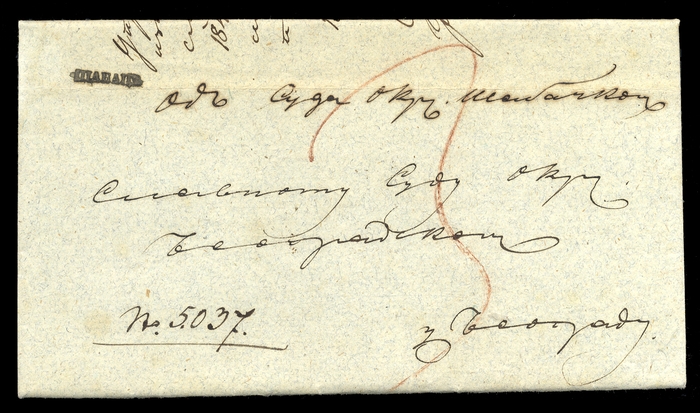 ШАБАЦЪ
Одъ Суда Окр. Шабачког
Славному Суду Окр.
Београдском
No. 5037.
у Београду.